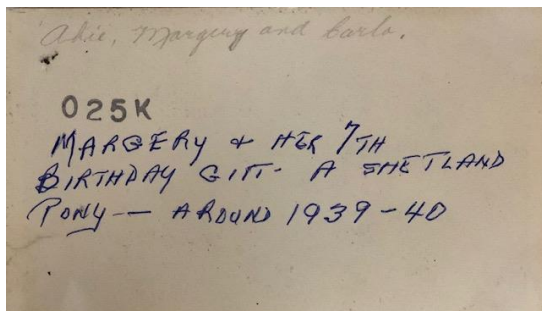 Abie, Margery and Carlo.
025K
MARGERY & HER 7TH
BIRTHDAY GIFT - A SHETLAND
PONY — AROUND 1939-40